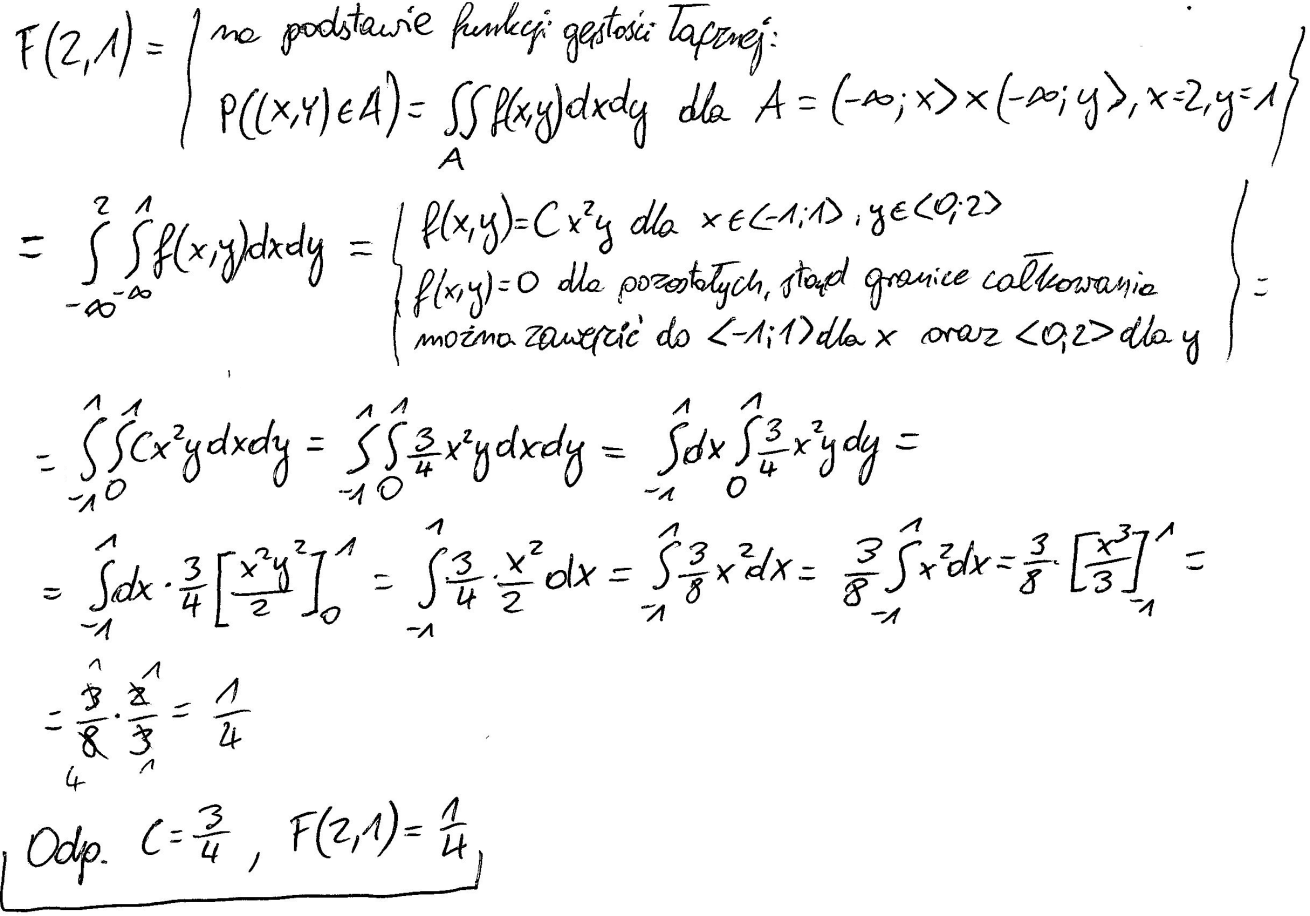 F(2,1) = { na podstawie funkcji gęstości łącznej:
P((X,Y) ∈ A) = ∬_A f(x,y)dxdy dla A = (-∞; x> × (-∞; y>, x=2, y=1 }
= ∫_{-∞}^{2} ∫_{-∞}^{1} f(x,y)dxdy = { f(x,y) = Cx²y dla x ∈ <-1;1>, y ∈ <0;2>
f(x,y) = 0 dla pozostałych, stąd granice całkowania
można zawęzić do <-1;1> dla x oraz <0;2> dla y } =
= ∫_{-1}^{1} ∫_{0}^{1} Cx²y dxdy = ∫_{-1}^{1} ∫_{0}^{1} 3/4 x²y dxdy = ∫_{-1}^{1} dx ∫_{0}^{1} 3/4 x²y dy =
= ∫_{-1}^{1} dx · 3/4 [x²y²/2]_{0}^{1} = ∫_{-1}^{1} 3/4 · x²/2 dx = ∫_{-1}^{1} 3/8 x² dx = 3/8 ∫_{-1}^{1} x² dx = 3/8 · [x³/3]_{-1}^{1} =
1 1
= 3/8 · 2/3 = 1/4
4 1
Odp. C = 3/4, F(2,1) = 1/4